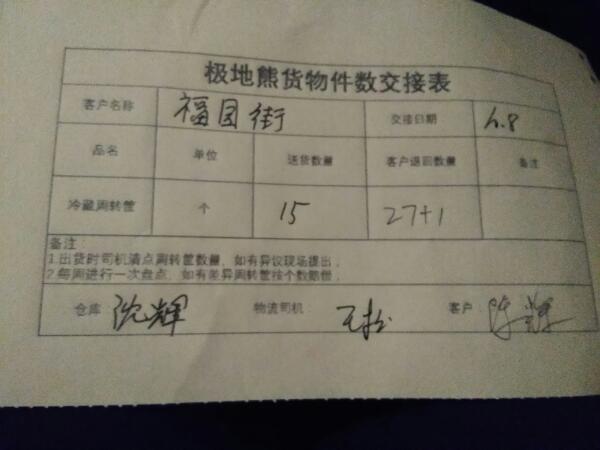 极地熊货物件数交接表
客户名称 福园街 交接日期
品名 单位 送货数量 客户退回数量 备注
冷藏周转筐 个 15 27+1
备注:
1.出货时司机清点周转筐数量,如有异议现场提出;
2.每周进行一次盘点,如有差异周转筐按个数赔偿;
仓库: 沈辉 物流司机: 王松 客户: